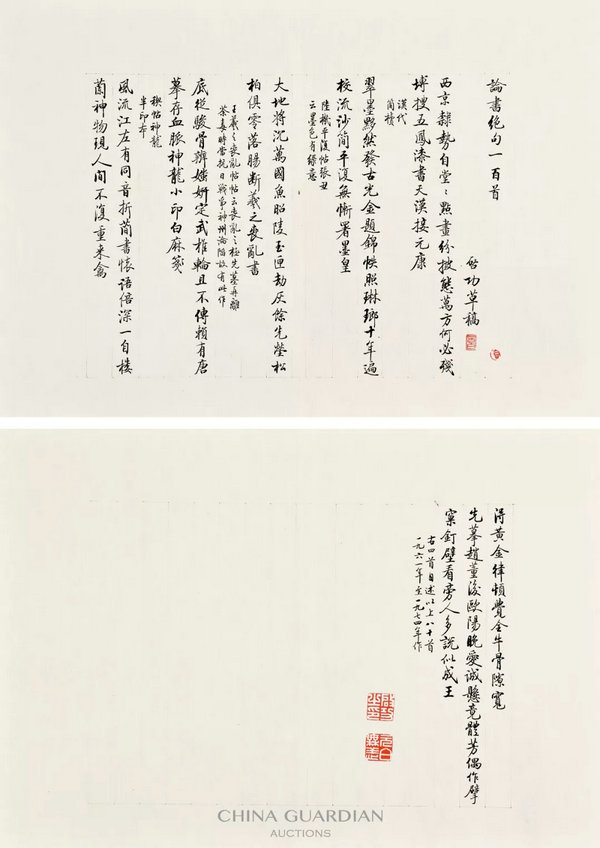 論書絕句一百首
啓功草稿
西京隸勢自堂〻點畫紛披態萬方何必殘
磚搜五鳳漆書天漢接元康
漢代
簡牘
翠墨黟然發古光金題錦帙照琳瑯十年遍
校流沙簡平復無慚署墨皇
陸機平復帖張丑
云墨色有綠意
大地將沉萬國魚昭陵玉匣劫灰餘先塋松
柏俱零落腸斷羲之喪亂書
王羲之喪亂帖帖云喪亂之極先墓再離
荼毒時當抗日戰爭神州淪陷故有此作
底從駿骨辨媸妍定武椎輪且不傳賴有唐
摹存血脈神龍小印白麻箋
禊帖神龍
半印本
風流江左有同音折簡書懷語倍深一自樓
蘭神物現人間不復重來禽
得黃金律頓費全牛骨隙寬
先摹趙董後歐陽晚愛誠懸竟體芳偶作擘
窠釘壁看旁人多說似成王
右四首自述以上八十首
一九六一年至一九七四年作
CHINA GUARDIAN
AUCTIONS